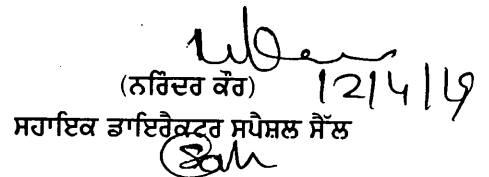 (ਨਰਿੰਦਰ ਕੌਰ) 12/4/19
ਸਹਾਇਕ ਡਾਇਰੈਕਟਰ ਸਪੈਸ਼ਲ ਸੈੱਲ